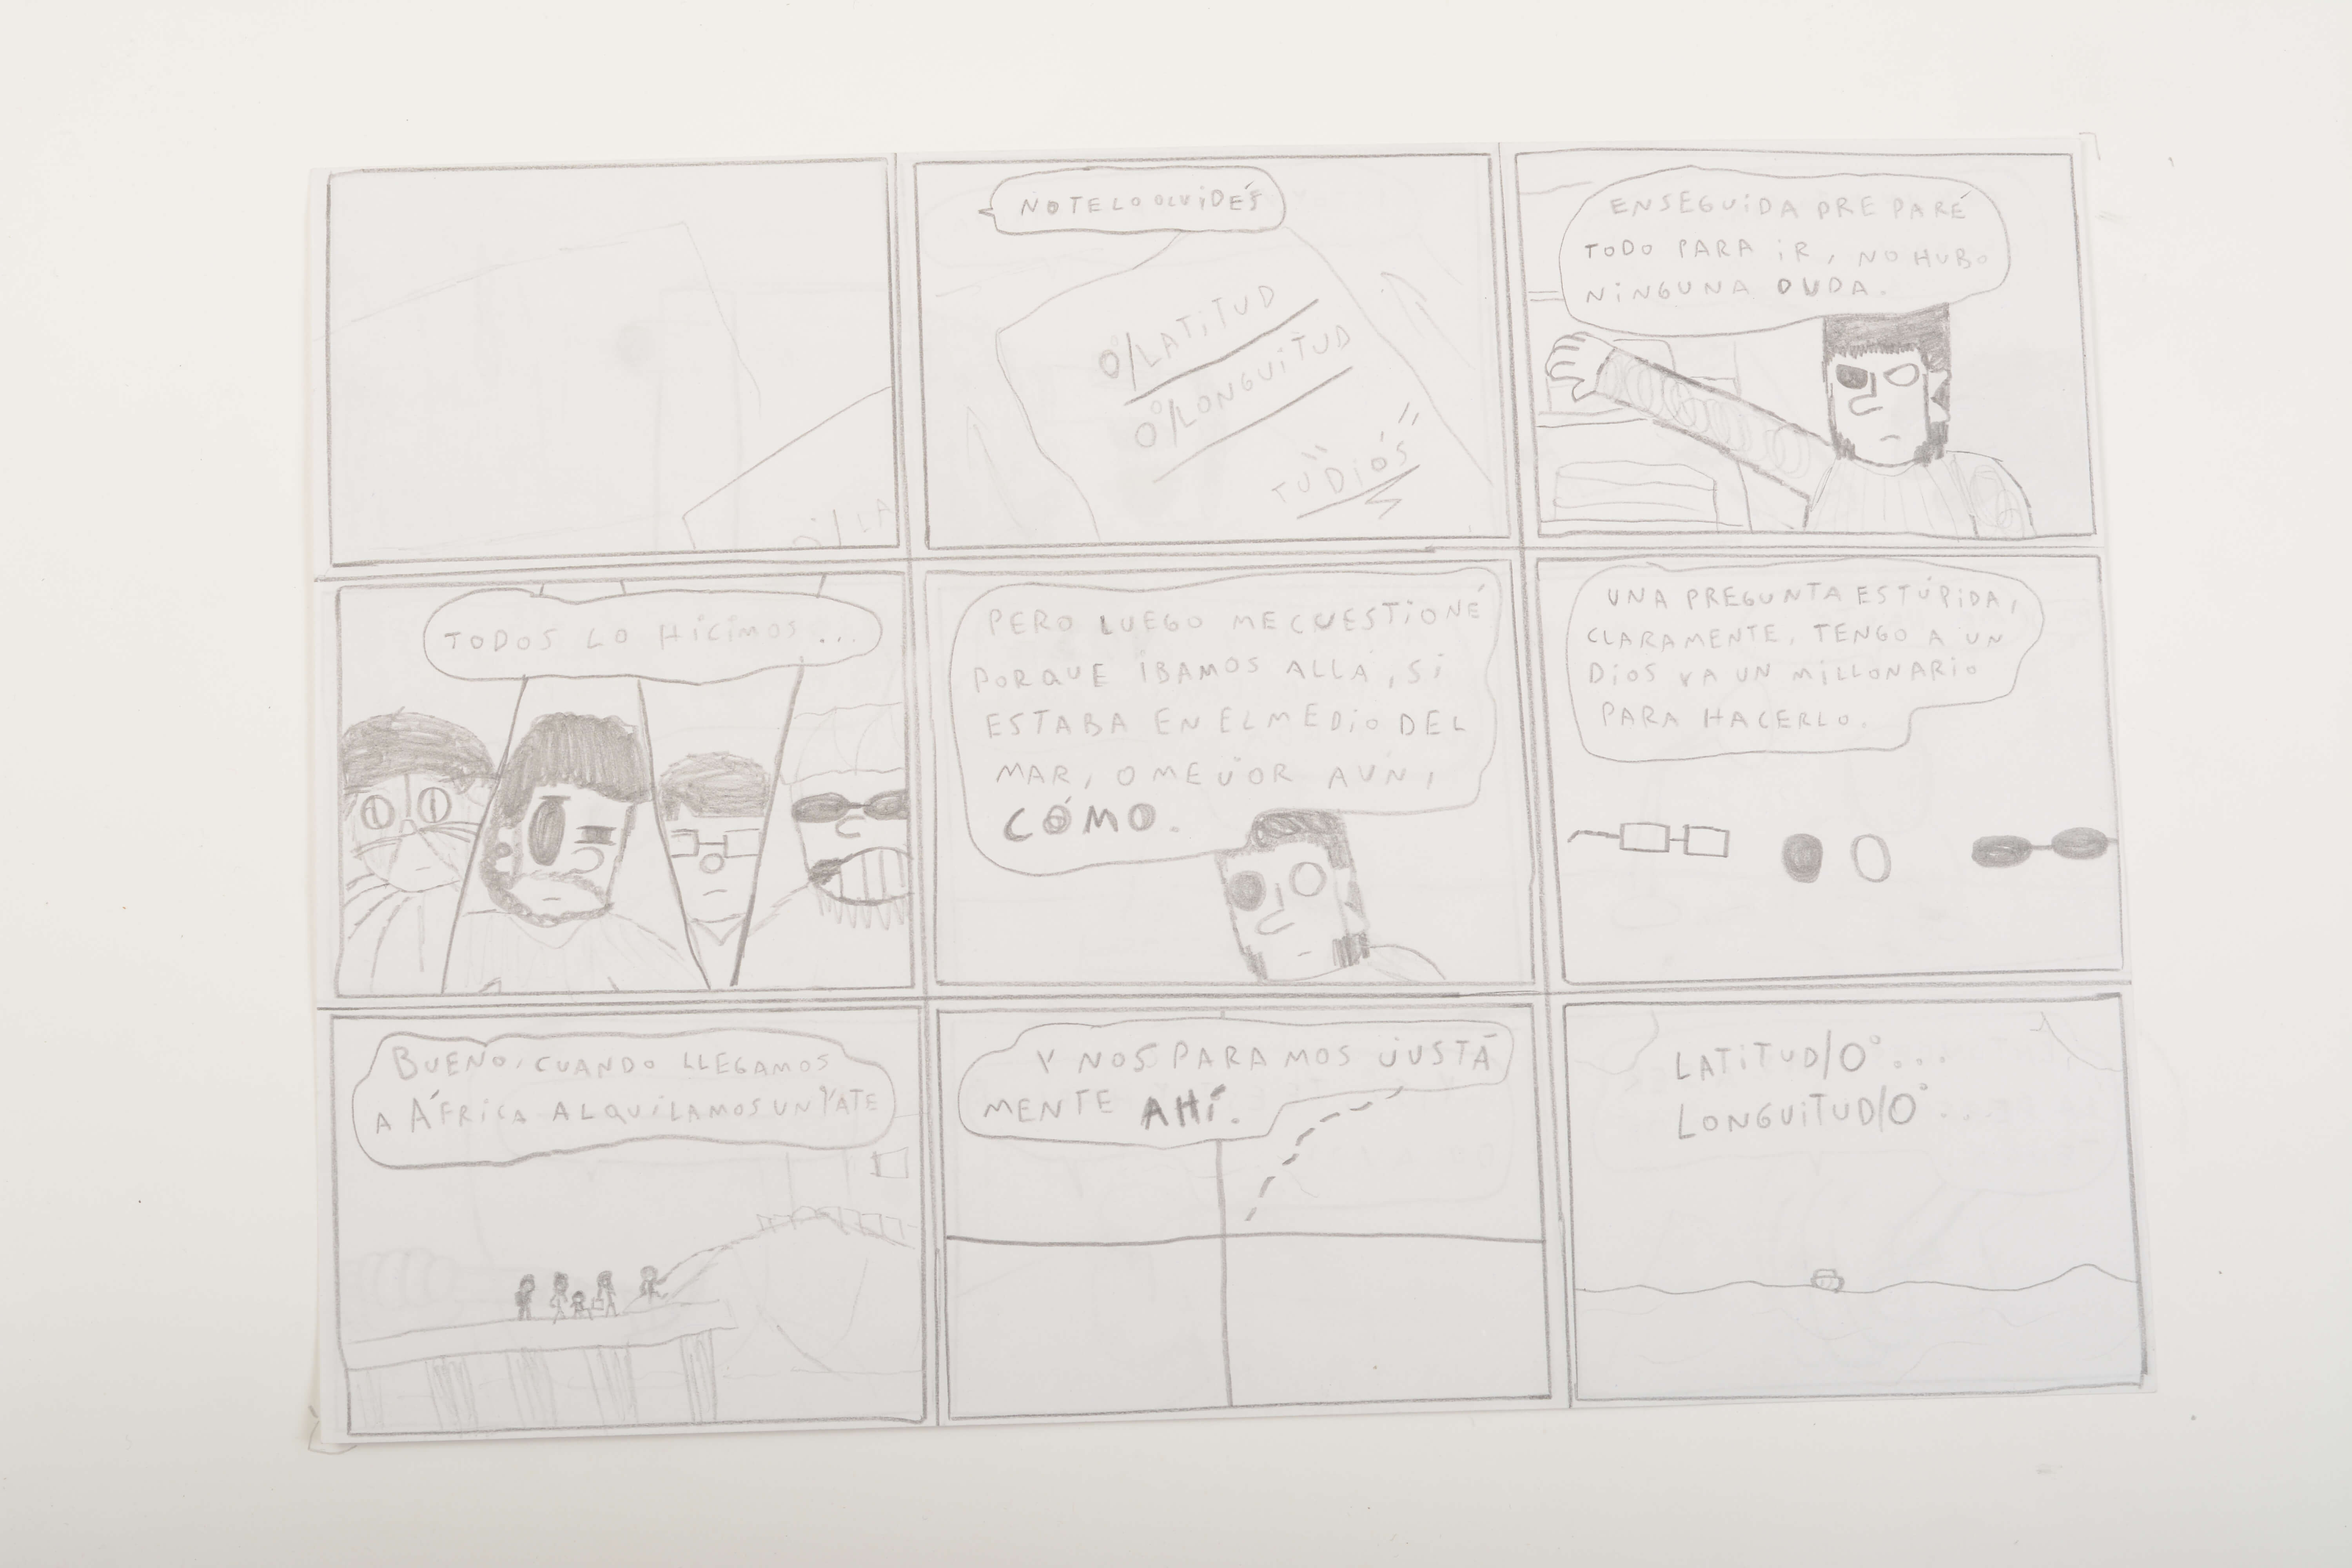 0°/LA
NO TE LO OLVIDÉS
0°/LATITUD
0°/LONGUITUD
TÚ DIÓS
ENSEGUIDA PREPARÉ
TODO PARA IR, NO HUBO
NINGUNA DUDA.
TODOS LO HICIMOS...
PERO LUEGO ME CUESTIONÉ
PORQUE IBAMOS ALLA, SI
ESTABA EN EL MEDIO DEL
MAR, O MEJOR AÚN,
CÓMO.
UNA PREGUNTA ESTÚPIDA,
CLARAMENTE, TENGO A UN
DIOS Y A UN MILLONARIO
PARA HACERLO.
BUENO, CUANDO LLEGAMOS
A ÁFRICA ALQUILAMOS UN YATE
Y NOS PARAMOS JUSTA
MENTE AHÍ.
LATITUD/0°...
LONGUITUD/0°...